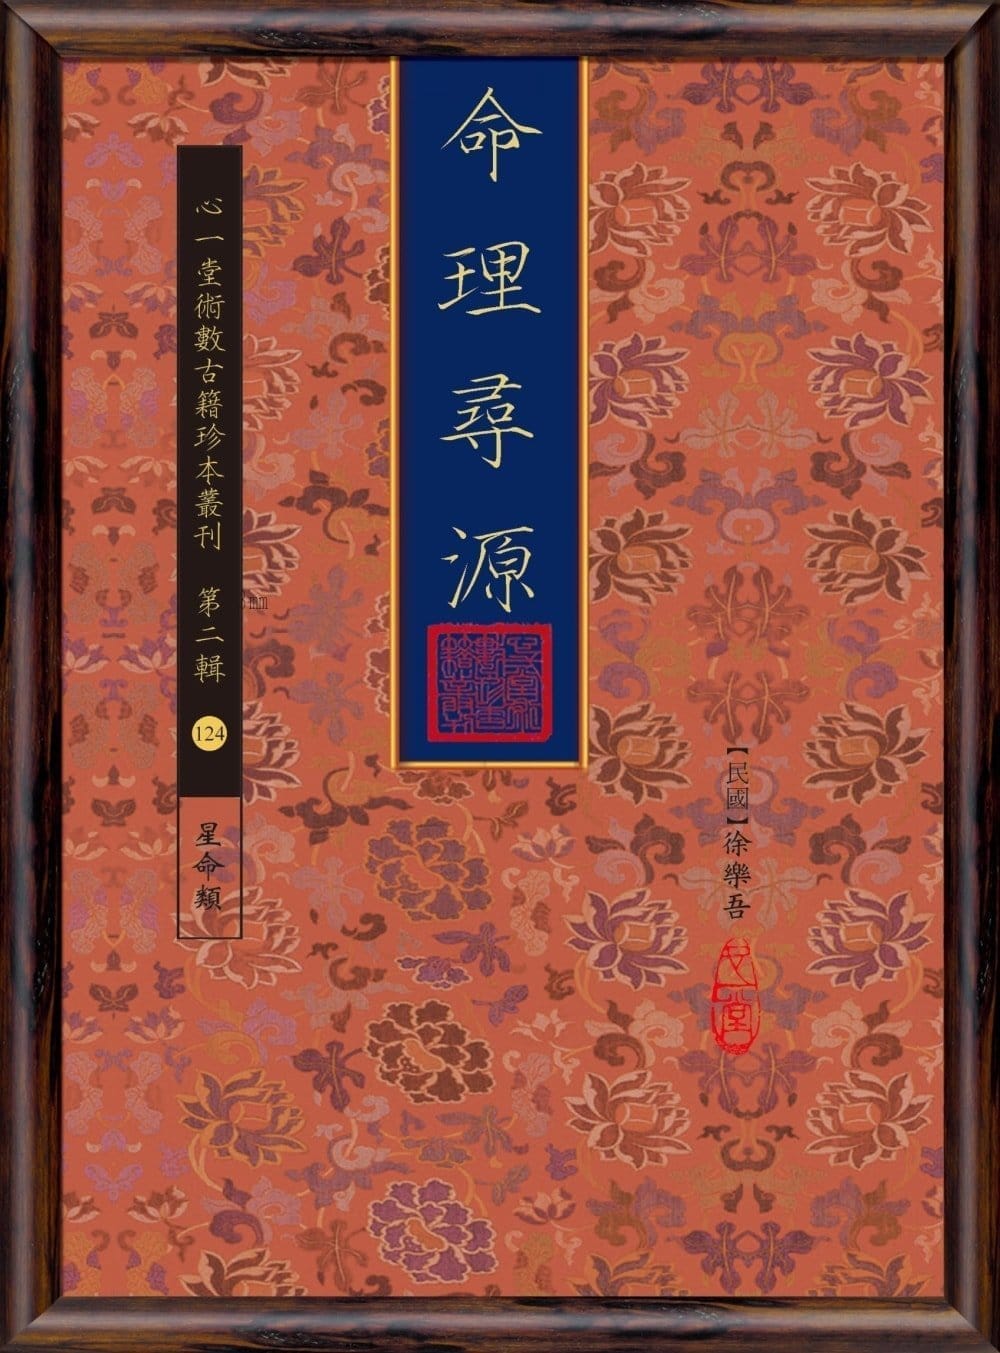 命理尋源
心一堂術數古籍珍本叢刊 第二輯
124
星命類
【民國】徐樂吾
心一堂
mm